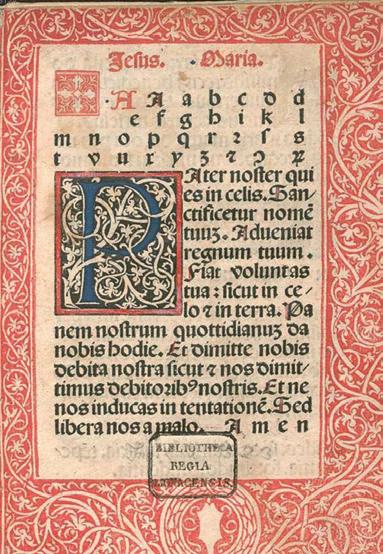 Jesus. Maria.
A A a b c d d
e f g h i k l
m n o p q r ꝛ ſ s
t v u x y ʒ ⁊ ꝯ ꝝ
PAter noſter qui
es in celis. San⸗
ctificetur nomē
tuuʒ. Adueniat
regnum tuum.
Fiat voluntas
tua: ſicut in ce⸗
lo ⁊ in terra. Pa
nem noſtrum quottidianuʒ da
nobis hodie. Et dimitte nobis
debita noſtra ſicut ⁊ nos dimit⸗
timus debitoribꝰ noſtris. Et ne
nos inducas in tentationē. Sed
libera nos a malo. Amen
BIBLIOTHECA
REGIA
MONACENSIS